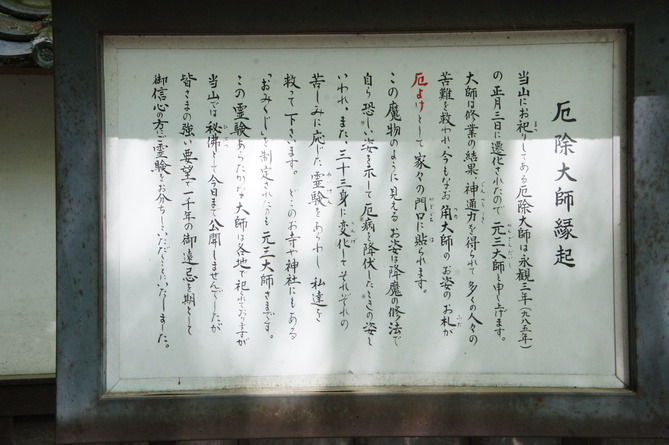 厄除大師縁起
当山にお祀りしてある厄除大師は永観三年(九八五年)
の正月三日に遷化されたので元三大師と申し上げます。
大師は修業の結果神通力を得られて多くの人々の
苦難を救われ、今もなお角大師のお姿のお札が
厄よけとして家々の門口に貼られます。
この魔物のように見えるお姿は降魔の修法で
自ら恐しい姿を示して厄病を降伏したときの姿と
いわれ、また、三十三身に変化してそれぞれの
苦しみに応じた霊験をあらわし私達を
救って下さいます。どこのお寺や神社にもある
「おみくじ」を制定されたのも元三大師さまです。
この霊験あらたかな大師は各地で祀られておりますが
当山では秘佛として今日まで公開しませんでしたが
皆さまの強い要望で一千年の御遠忌を期として
御信心の方に霊験をお分ちしていただくことにいたしました。